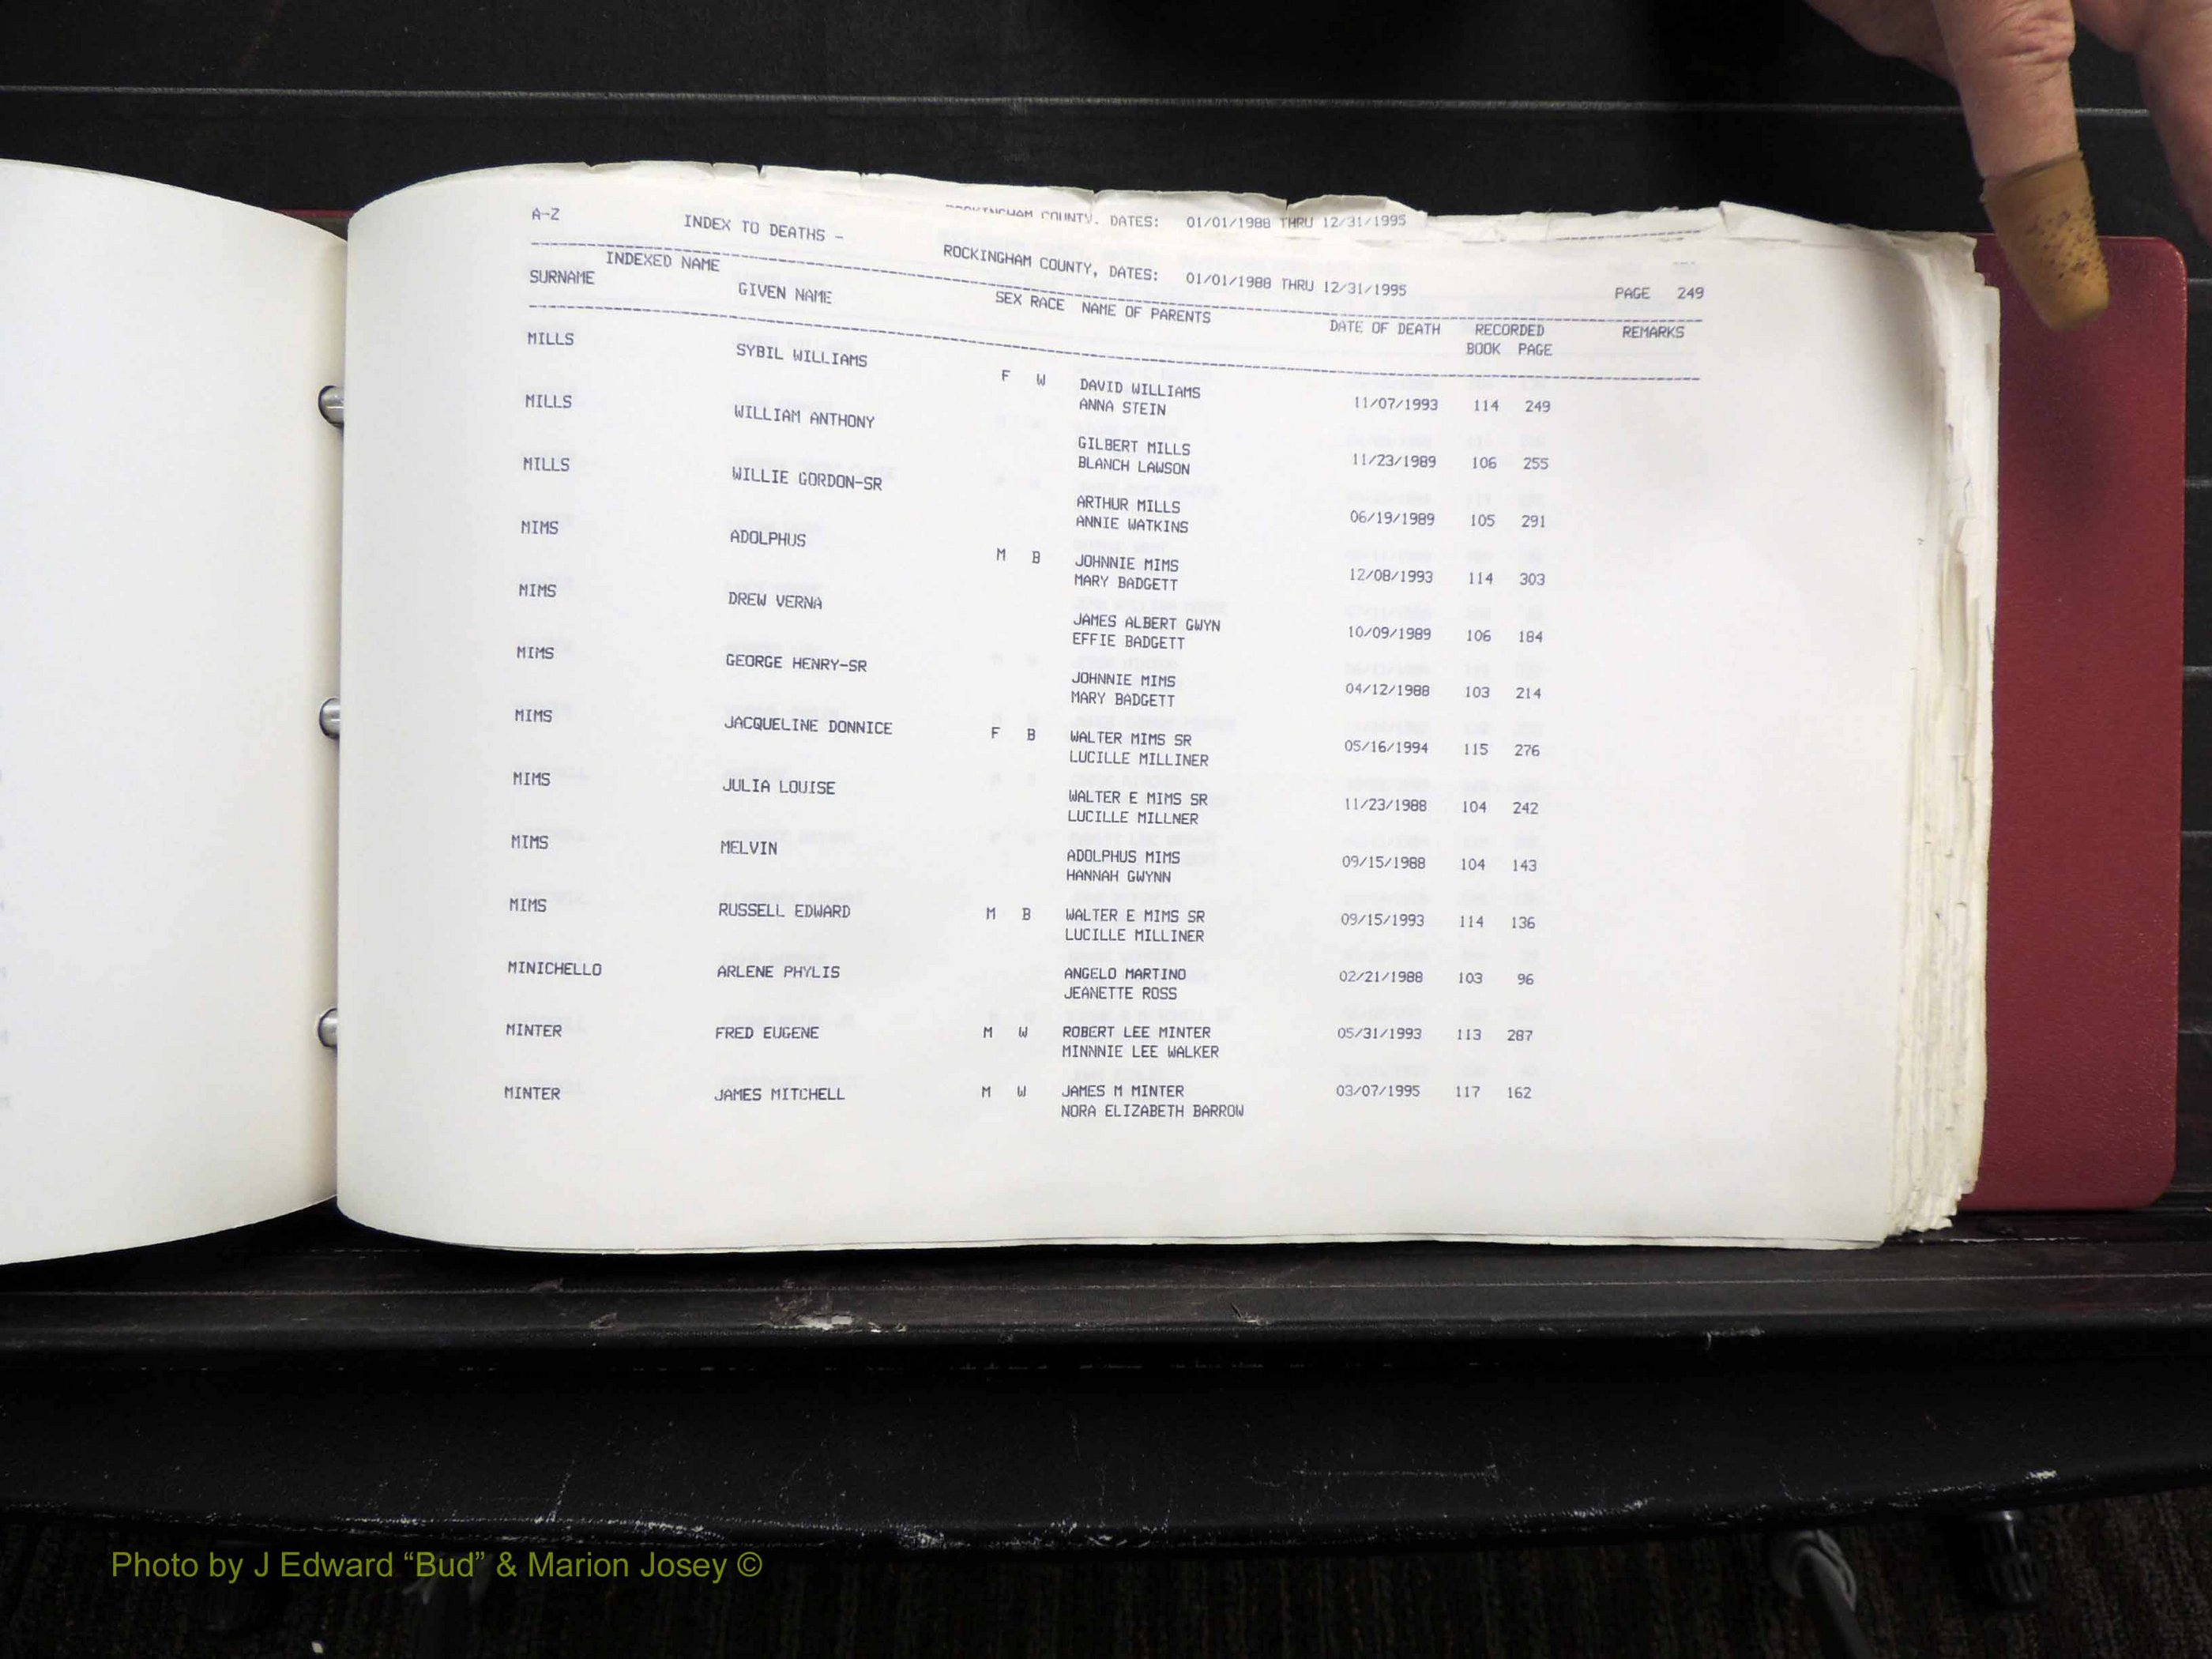 COUNTY. DATES: 01/01/1988 THRU 12/31/1995
A-Z INDEX TO DEATHS - ROCKINGHAM COUNTY, DATES: 01/01/1988 THRU 12/31/1995 PAGE 249
INDEXED NAME
SURNAME GIVEN NAME SEX RACE NAME OF PARENTS DATE OF DEATH RECORDED REMARKS
BOOK PAGE
MILLS SYBIL WILLIAMS F W DAVID WILLIAMS 11/07/1993 114 249
ANNA STEIN
MILLS WILLIAM ANTHONY GILBERT MILLS 11/23/1989 106 255
BLANCH LAWSON
MILLS WILLIE GORDON-SR ARTHUR MILLS 06/19/1989 105 291
ANNIE WATKINS
MIMS ADOLPHUS M B JOHNNIE MIMS 12/08/1993 114 303
MARY BADGETT
MIMS DREW VERNA JAMES ALBERT GWYN 10/09/1989 106 184
EFFIE BADGETT
MIMS GEORGE HENRY-SR JOHNNIE MIMS 04/12/1988 103 214
MARY BADGETT
MIMS JACQUELINE DONNICE F B WALTER MIMS SR 05/16/1994 115 276
LUCILLE MILLINER
MIMS JULIA LOUISE WALTER E MIMS SR 11/23/1988 104 242
LUCILLE MILLNER
MIMS MELVIN ADOLPHUS MIMS 09/15/1988 104 143
HANNAH GWYNN
MIMS RUSSELL EDWARD M B WALTER E MIMS SR 09/15/1993 114 136
LUCILLE MILLINER
MINICHELLO ARLENE PHYLIS ANGELO MARTINO 02/21/1988 103 96
JEANETTE ROSS
MINTER FRED EUGENE M W ROBERT LEE MINTER 05/31/1993 113 287
MINNNIE LEE WALKER
MINTER JAMES MITCHELL M W JAMES M MINTER 03/07/1995 117 162
NORA ELIZABETH BARROW
Photo by J Edward “Bud” & Marion Josey ©